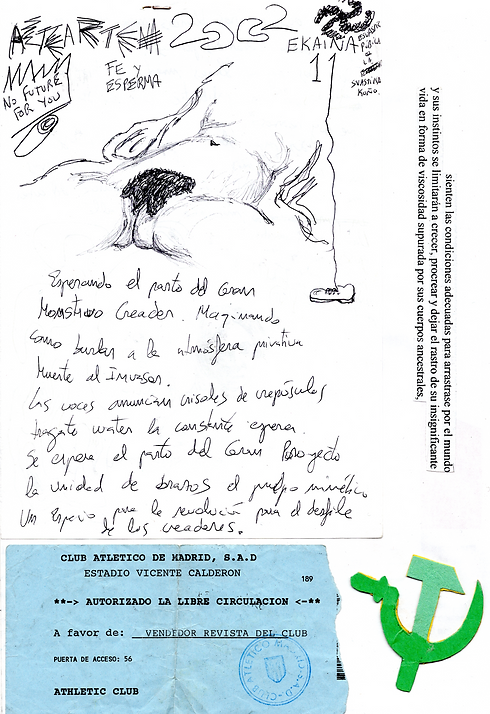 ASTEARTEA 2002
EKAINA
11
FE Y
ESPERMA
NO FUTURE
FOR YOU
PÚBLICA
LA
SVASTIKA
sienten las condiciones adecuadas para arrastrase por el mundo
y sus instintos se limitarán a crecer, procrear y dejar el rastro de su insignificante
vida en forma de viscosidad supurada por sus cuerpos ancestrales,
Esperando el parto del Gran
Monstruo Creador. Maginando
como burlar a la atmósfera privativa
Muerte al Invasor.
Las voces anuncian crisoles de crepúsculos
water la constante espera.
Se espera el parto del Gran Proyecto
la unidad de brazos el pueblo mimético
Un Espacio para la revolución para el desfile
de los creadores.
CLUB ATLETICO DE MADRID, S.A.D
ESTADIO VICENTE CALDERON
189
**-> AUTORIZADO LA LIBRE CIRCULACION <-**
A favor de: VENDEDOR REVISTA DEL CLUB
PUERTA DE ACCESO: 56
ATHLETIC CLUB
CLUB ATLETICO MADRID-S.A.D-